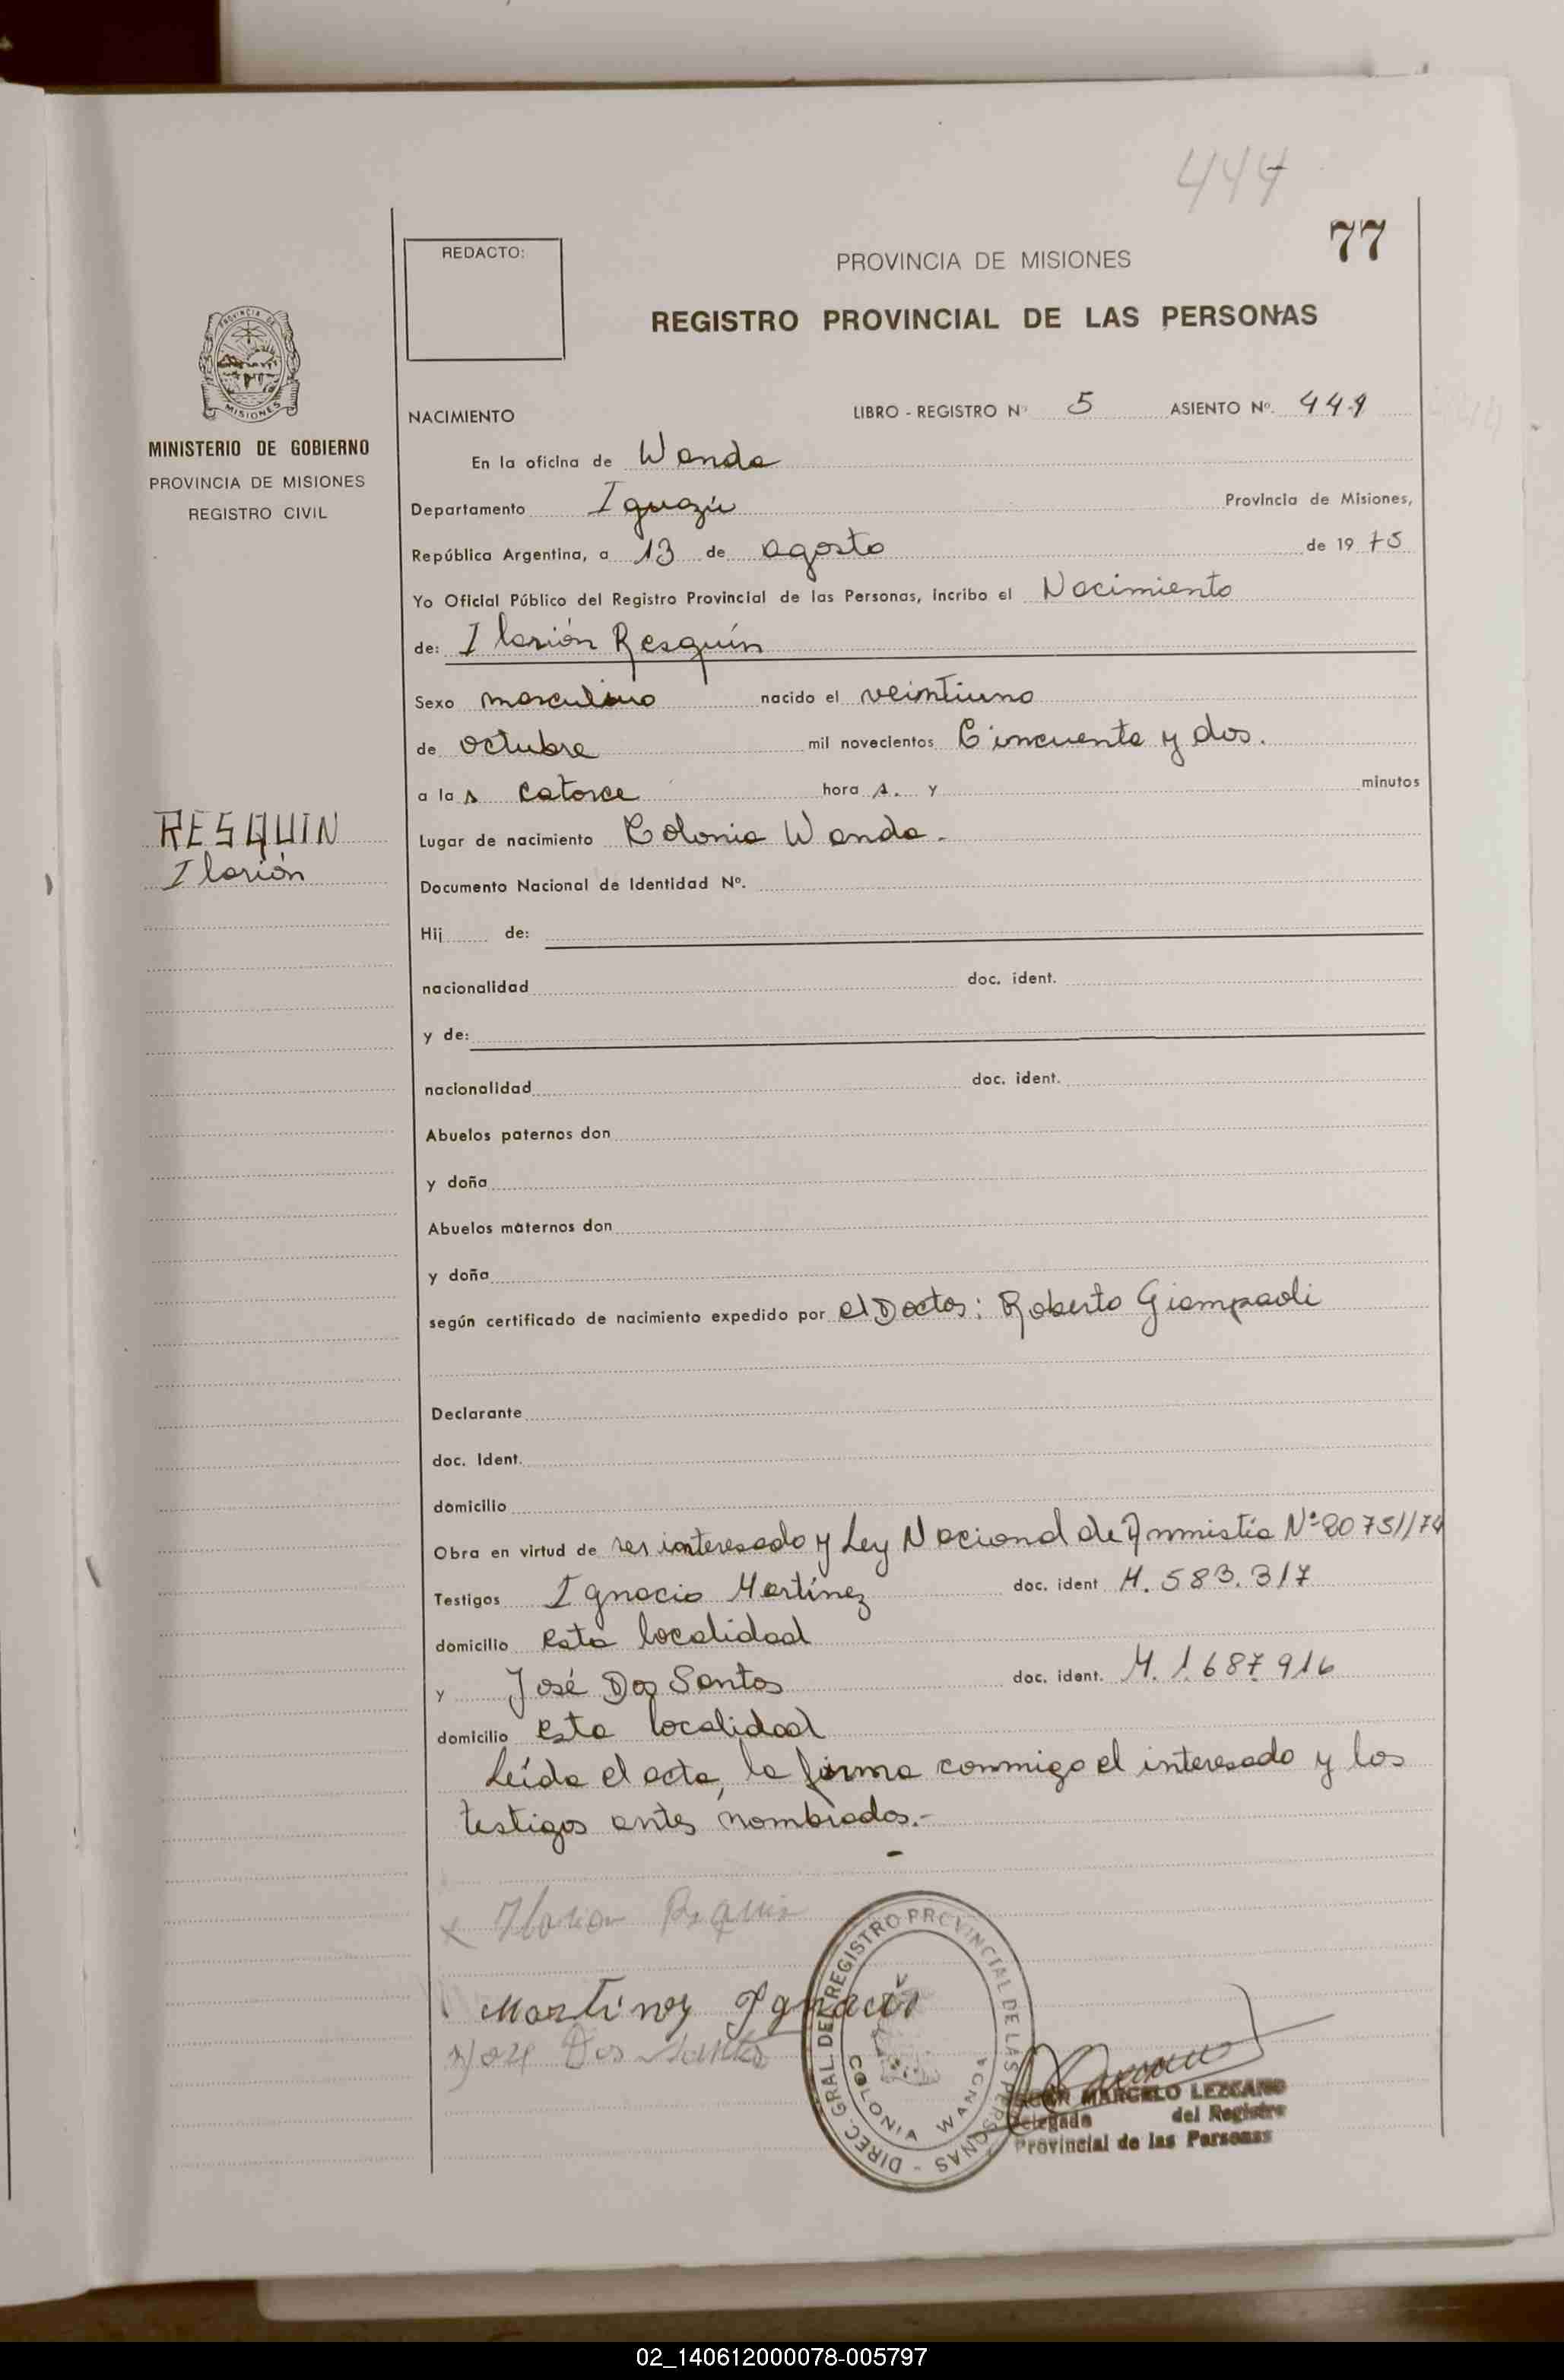 444
77
REDACTO:
PROVINCIA DE MISIONES
REGISTRO PROVINCIAL DE LAS PERSONAS
PROVINCIA DE
MISIONES
MINISTERIO DE GOBIERNO
PROVINCIA DE MISIONES
REGISTRO CIVIL
NACIMIENTO LIBRO - REGISTRO Nº 5 ASIENTO Nº. 444
En la oficina de Wanda
Departamento Iguazú Provincia de Misiones,
República Argentina, a 13 de agosto de 19 75
Yo Oficial Público del Registro Provincial de las Personas, incribo el Nacimiento
de: Ilarión Resquín
Sexo masculino nacido el veintiuno
de octubre mil novecientos Cincuenta y dos.
a la s catorce hora s. y minutos
RESQUIN
Ilarión
Lugar de nacimiento Colonia Wanda.
Documento Nacional de Identidad Nº.
Hij de:
nacionalidad doc. ident.
y de:
nacionalidad doc. ident.
Abuelos paternos don
y doña
Abuelos maternos don
y doña
según certificado de nacimiento expedido por el Doctor: Roberto Giampaoli
Declarante
doc. Ident.
domicilio
Obra en virtud de ser interesado y Ley Nacional de Ammistia Nº 20751/74
Testigos Ignacio Martínez doc. ident M. 583.317
domicilio esta localidad
y José Dos Santos doc. ident. M. 1.687.916
domicilio esta localidad
Leída el acta, la firma conmigo el interesado y los
testigos antes nombrados.-
x Ilarion Resquin
Martinez Ignacio
Jose Dos Santos
DIREC. GRAL. DEL REGISTRO PROVINCIAL DE LAS PERSONAS -
COLONIA WANDA
MARCELO LEZCANO
Delegado del Registro
Provincial de las Personas
02_140612000078-005797